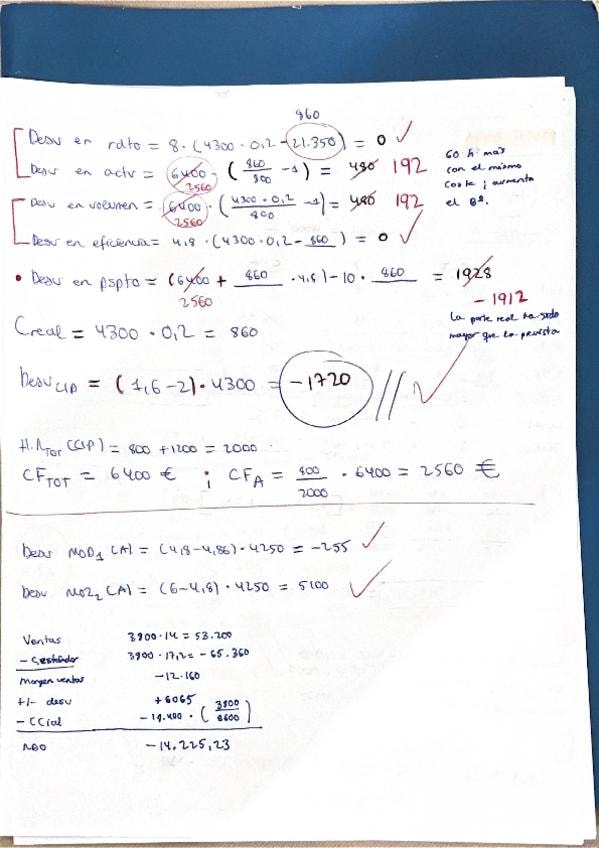 860
Desv en rdto = 8 · (4300 · 0,2 - 21.350) = 0 ✓
Desv en actv = 6400 · (860/800 - 1) = 480 192
2560
60 h más
con el mismo
coste ; aumenta
el Bº.
Desv en volumen = 6400 · (4300 · 0,2/800 - 1) = 480 192
2560
Desv en eficiencia = 4,8 · (4300 · 0,2 - 860) = 0 ✓
• Desv en pspto = (6400 + 860 · 4,8) - 10 · 860 = 1928
2560
- 1912
La parte real ha sido
mayor que la prevista
Creal = 4300 · 0,2 = 860
Desv CIP = (1,6 - 2) · 4300 = -1720 // ✓
H.A TOT (CIP) = 800 + 1200 = 2000
CF TOT = 6400 € ; CF A = 800/2000 · 6400 = 2560 €
Desv MOD1 (A) = (4,8 - 4,86) · 4250 = -255 ✓
Desv MOD2 (A) = (6 - 4,8) · 4250 = 5100 ✓
Ventas 3800 · 14 = 53.200
- Cestándar 3800 · 17,2 = - 65.360
Margen ventas -12.160
+/- desv +6065
- CCial - 18.400 · (3800/8600)
RDO -14.225,23